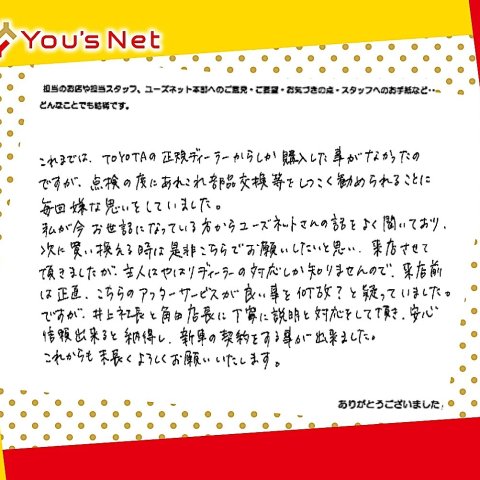 You's Net
担当のお店や担当スタッフ、ユーズネット本部へのご意見・ご要望・お気づきの点・スタッフへのお手紙など…
どんなことでも結構です。
これまでは、TOYOTAの正規ディーラーからしか購入した事がなかったの
ですが、点検の度にあれこれ部品交換等をしつこく勧められることに
毎回嫌な思いをしていました。
私が今お世話になっている方からユーズネットさんの話をよく聞いており、
次に買い換える時は是非こちらでお願いしたいと思い、来店させて
頂きましたが、主人はやはりディーラーの対応しか知りませんので、来店前
は正直、こちらのアフターサービスが良い事を何故?と疑っていました。
ですが、井上社長と角田店長に丁寧に説明と対応をして頂き、安心
信頼出来ると納得し、新車の契約をする事が出来ました。
これからも末長くよろしくお願いいたします。
ありがとうございました